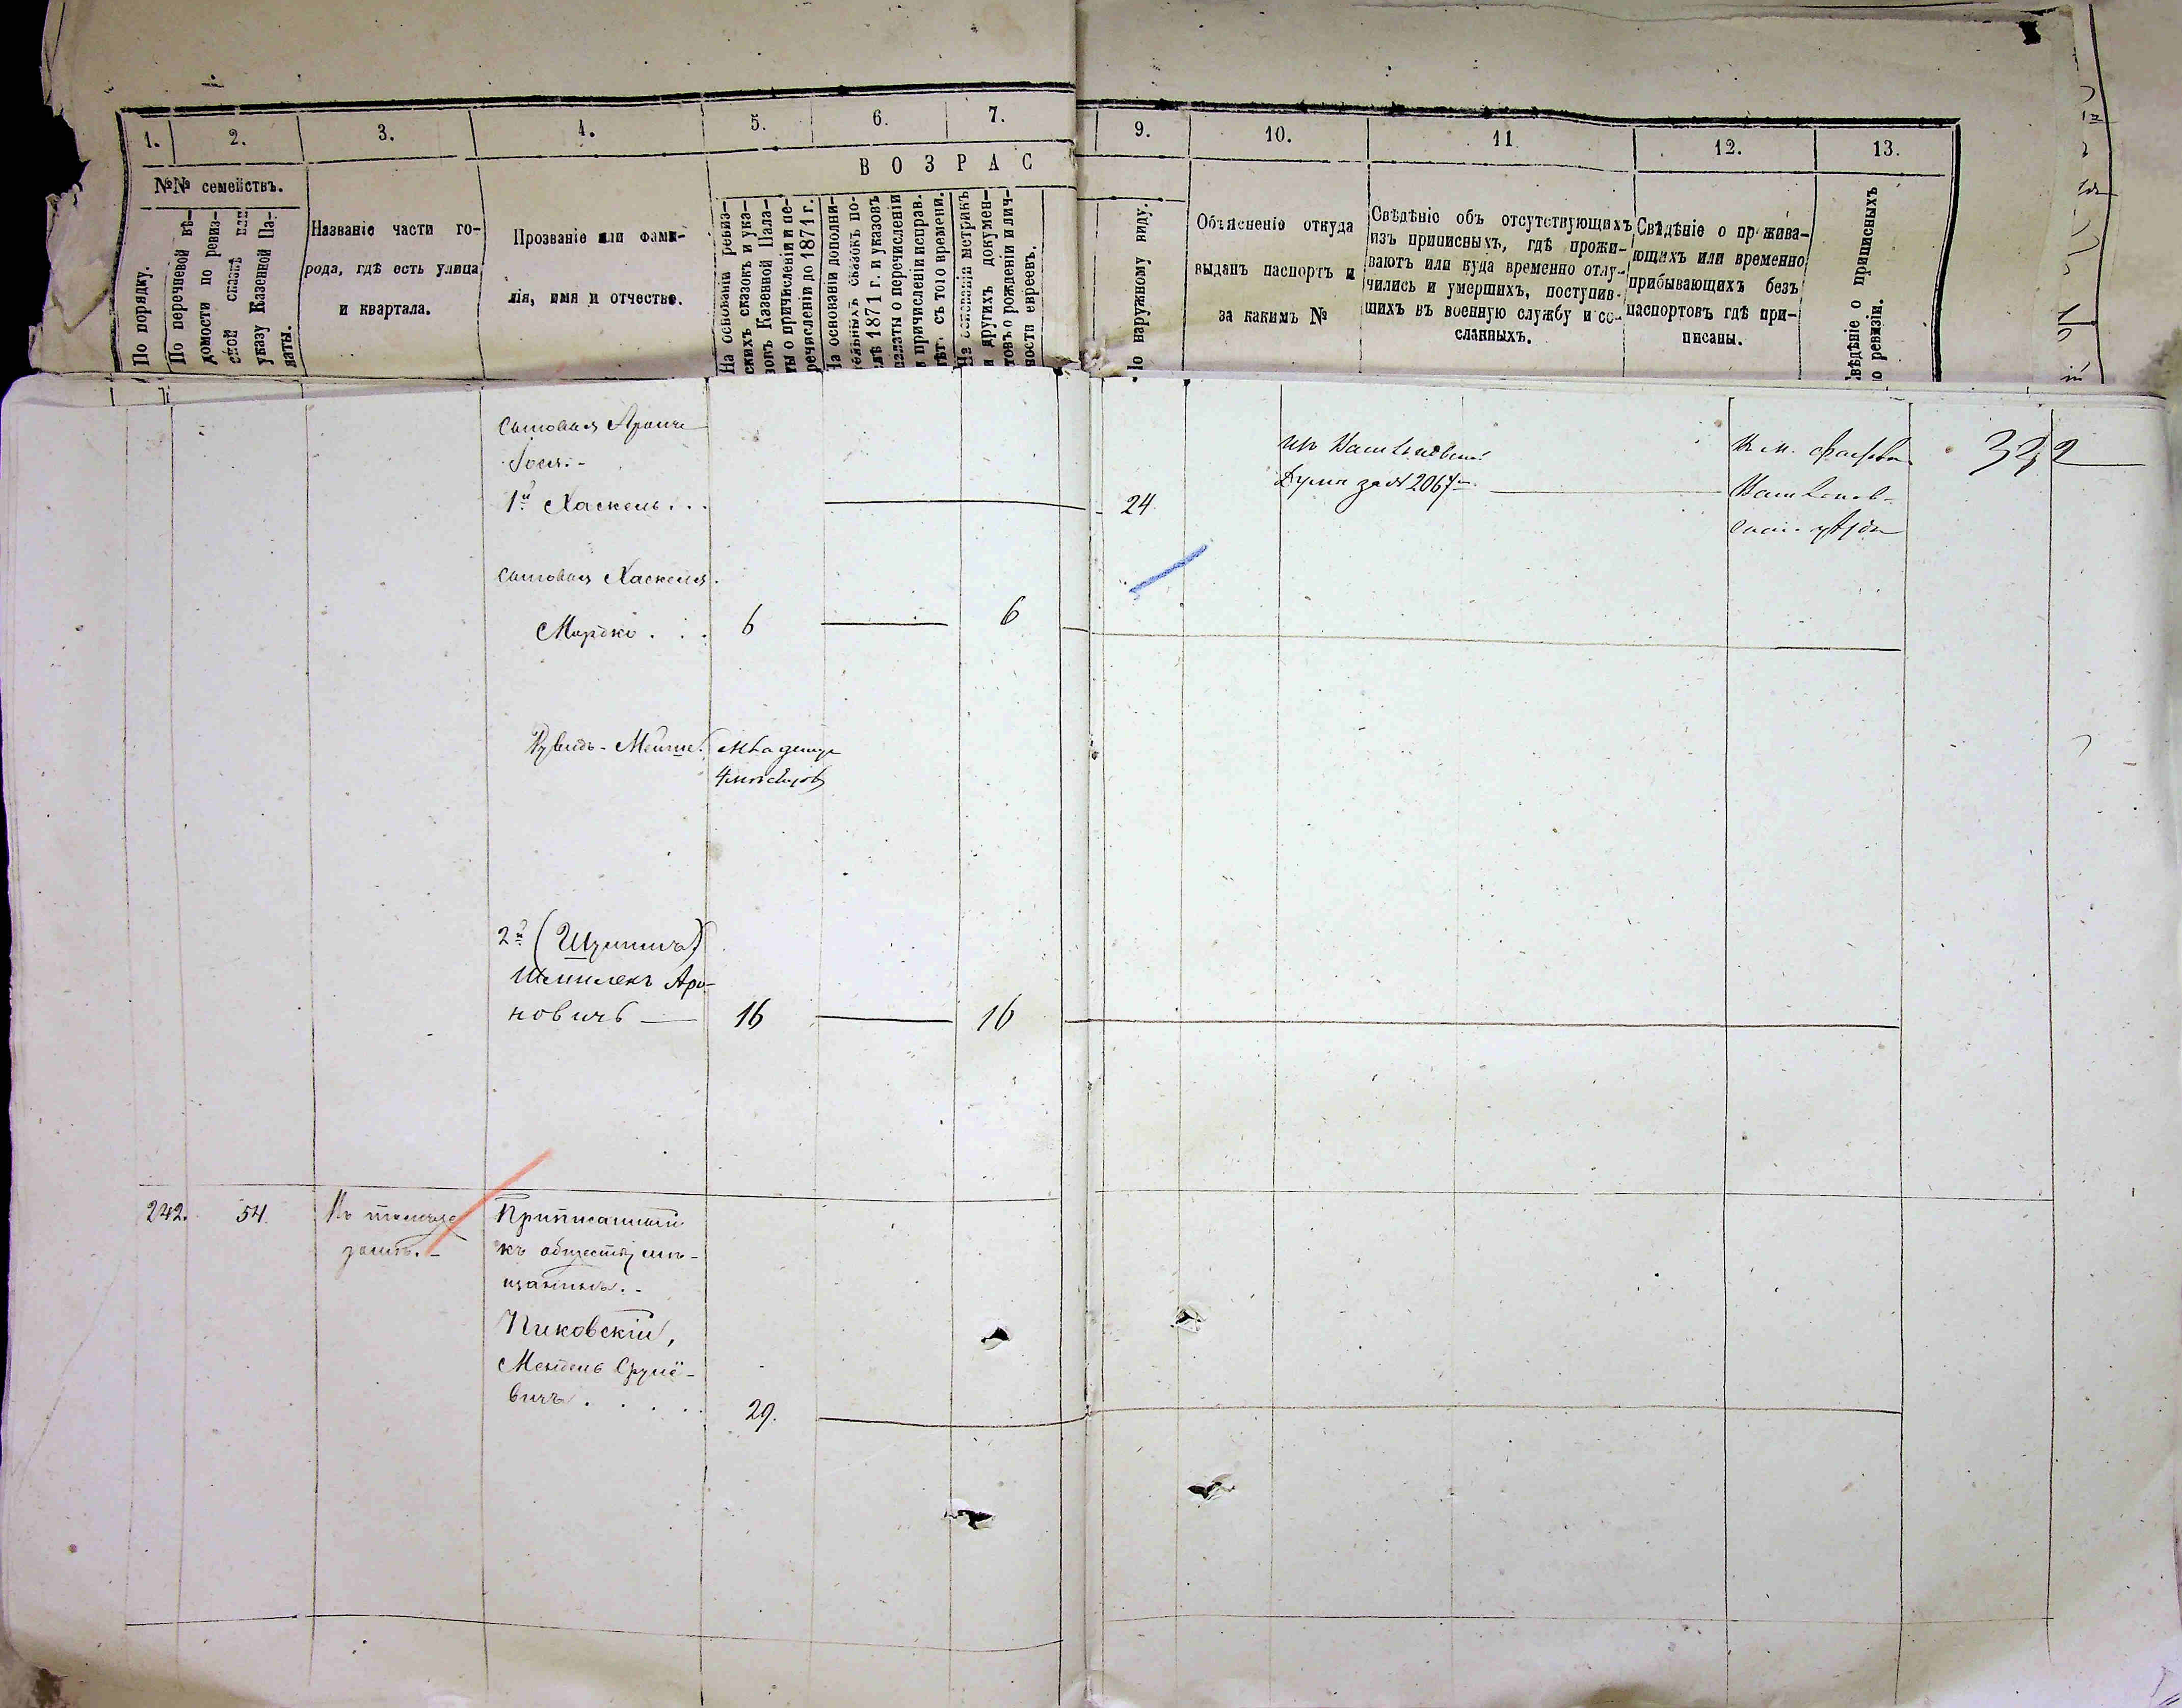 1.
2.
3.
4.
5.
6.
7.
9.
10.
11
12.
13.
В О З Р А С
№№ семействъ.
По порядку.
По перечневой вѣ-
домости по ревиз-
ской сказкѣ или
указу Казенной Па-
латы.
Названіе части го-
рода, гдѣ есть улица
и квартала.
Прозваніе или фами-
лія, имя и отчество.
На основаніи ревиз-
скихъ сказокъ и ука-
зовъ Казенной Пала-
ты о причисленіи и пе-
речисленіи до 1871 г.
На основаніи дополни-
тельныхъ сказокъ по-
слѣ 1871 г. и указовъ
палаты о перечисленіи
и причисленіи исправ.
лѣт. съ того времени.
На основаніи метрикъ
и другихъ докумен-
товъ о рожденіи и лич-
ности евреевъ.
По наружному виду.
Объясненіе откуда
выданъ паспортъ и
за какимъ №
Свѣдѣніе объ отсутствующихъ
изъ приписныхъ, гдѣ прожи-
ваютъ или куда временно отлу-
чились и умершихъ, поступив-
шихъ въ военную службу и со-
сланныхъ.
Свѣдѣніе о прожива-
ющихъ или временно
прибывающихъ безъ
паспортовъ гдѣ при-
писаны.
Свѣдѣніе о приписныхъ
по ревизіи.
Сыновья Арона
1й Хаскель . . .
24.
Думы за № 2067
332
сыновья Хаскеля.
Мордко . . .
6
6
Рувидъ-Мейше.
младенцу
4 мѣсяцовъ
2й
Шмилекъ Аро-
новичъ
16
16
242.
54.
Приписанный
къ обществу мѣ-
щанинъ.
Пиковскій,
Мендель Сруліо-
вичъ . . . . .
29.